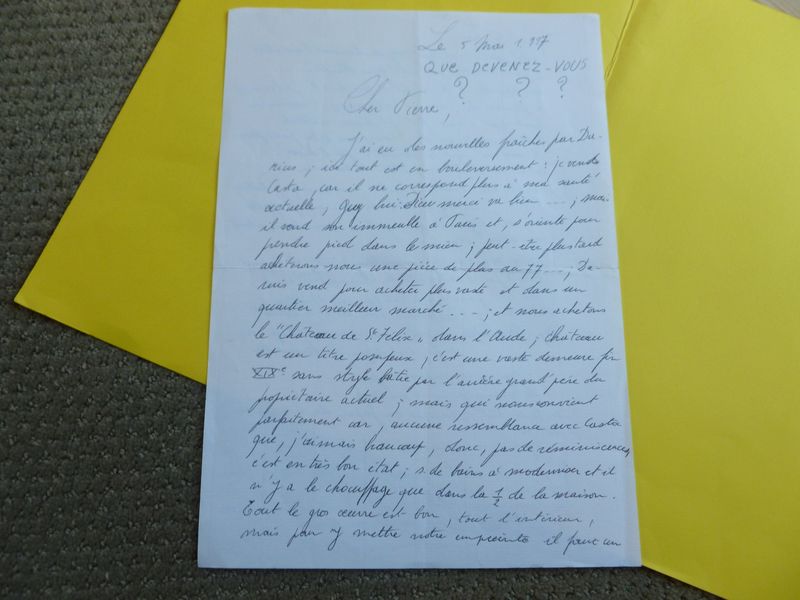 Le 5 Mai 1997
QUE DEVENEZ-VOUS
? ? ?
Cher Pierre,
J'ai eu des nouvelles fraîches par Da-
rius ; ici tout est en bouleversement : je vends
Casta, car il ne correspond plus à ma santé
actuelle, Guy lui Dieu merci va bien ... ; mais
il vend son immeuble à Paris et, s'oriente pour
prendre pied dans le mien ; peut-être plus tard
achèterons nous une pièce de plus au 77 ... ; Da-
rius vend pour acheter plus vaste et dans un
quartier meilleur marché ... ; et nous achetons
le "Château de St Félix" dans l'Aude ; château
est un titre pompeux, c'est une vaste demeure fin
XIXe sans style bâtie par l'arrière grand'père du
propriétaire actuel ; mais qui nous convient
parfaitement car, aucune ressemblance avec Casta
que, j'aimais beaucoup, donc, pas de réminiscences,
c'est en très bon état ; s. de bains à moderniser et il
n'y a le chauffage que dans la 1/2 de la maison.
Tout le gros œuvre est bon, tout l'intérieur,
mais pour y mettre notre empreinte il faut un